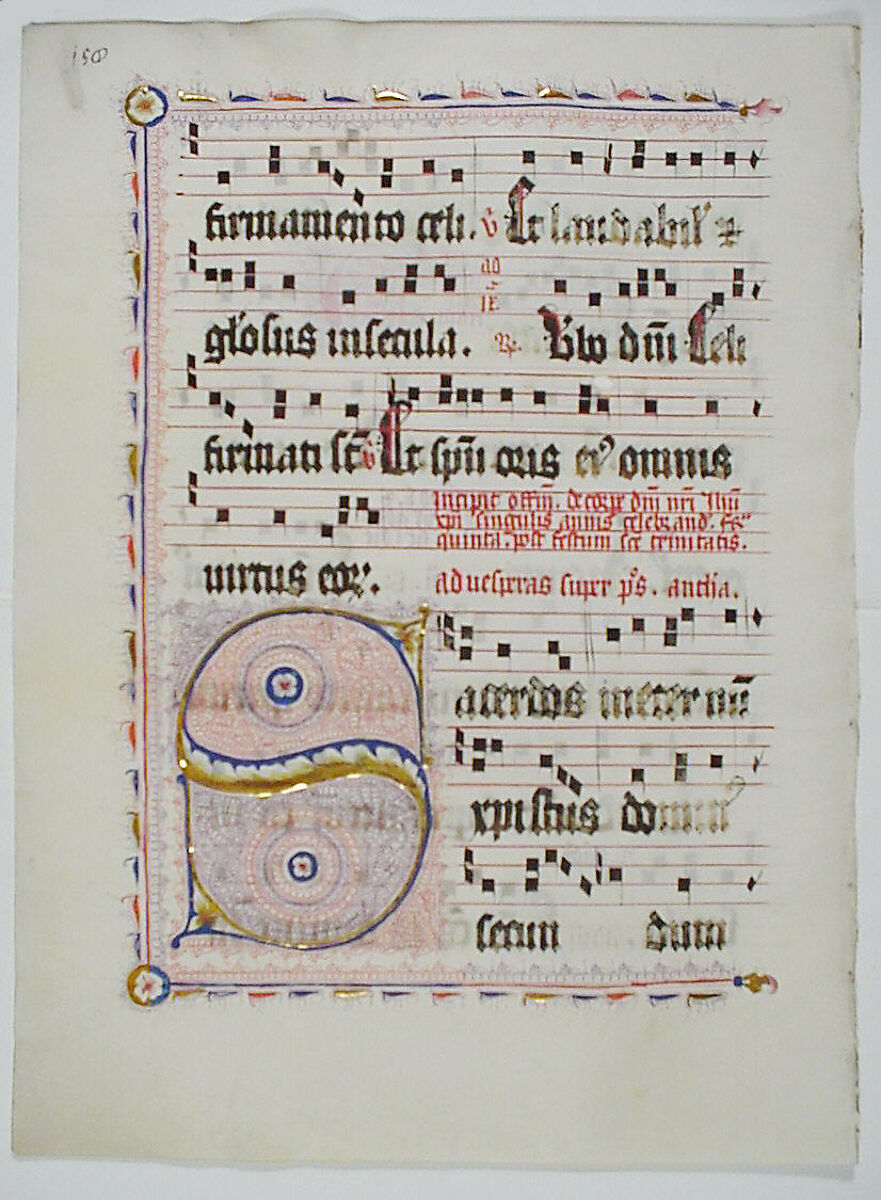 158
firmamento celi. v Et laudabil' &
ad
gl'osus in secula. R. V'bo dn̄i Celi
firmati st̄ v Et sp̄u oris ei' omnis
Incipit offm̄. de corpe dn̄i nr̄i Ihū
xpi singulis annis celebrand. fr'
quinta. post festum sc̄e trinitatis.
uirtus eoꝝ. ad uesperas super p̄s. anth̄a.
Sacerdos in eter nū
xpistus domin'
secun dum